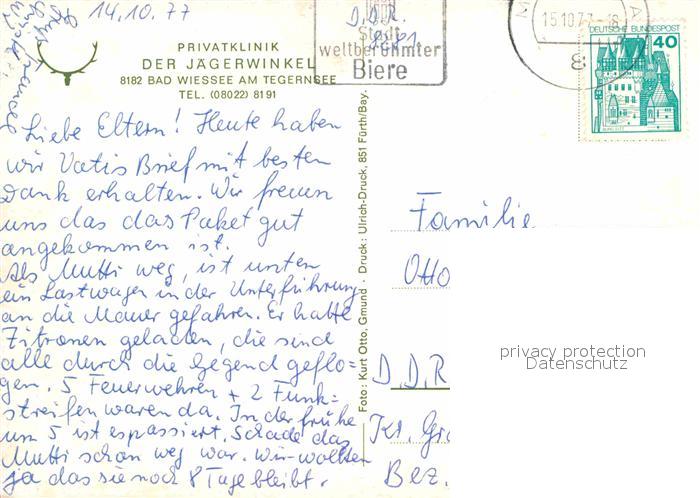 14.10.77
D.D.R.
9881
Stadt
weltberühmter
Biere
15.10.77-18
8
DEUTSCHE BUNDESPOST
40
BURG ELTZ
PRIVATKLINIK
DER JÄGERWINKEL
8182 BAD WIESSEE AM TEGERNSEE
TEL. (08022) 8191
Liebe Eltern! Heute haben
wir Vatis Brief mit besten
Dank erhalten. Wir freuen
uns das das Paket gut
angekommen ist.
Als Mutti weg, ist unten
ein Lastwagen in der Unterführung
an die Mauer gefahren. Er hatte
Zitronen geladen, die sind
alle durch die Gegend geflo-
gen. 5 Feuerwehren + 2 Funk=
streifen waren da. In der frühe
um 5 ist es passiert. Schade das
Mutti schon weg war. Wir wollten
ja das sie noch 8 Tage bleibt.
Foto: Kurt Otto, Gmund . Druck: Ulrich-Druck, 851 Fürth/Bay.
Familie
Otto
D.D.R
Kr. Gr
Bez.
privacy protection
Datenschutz